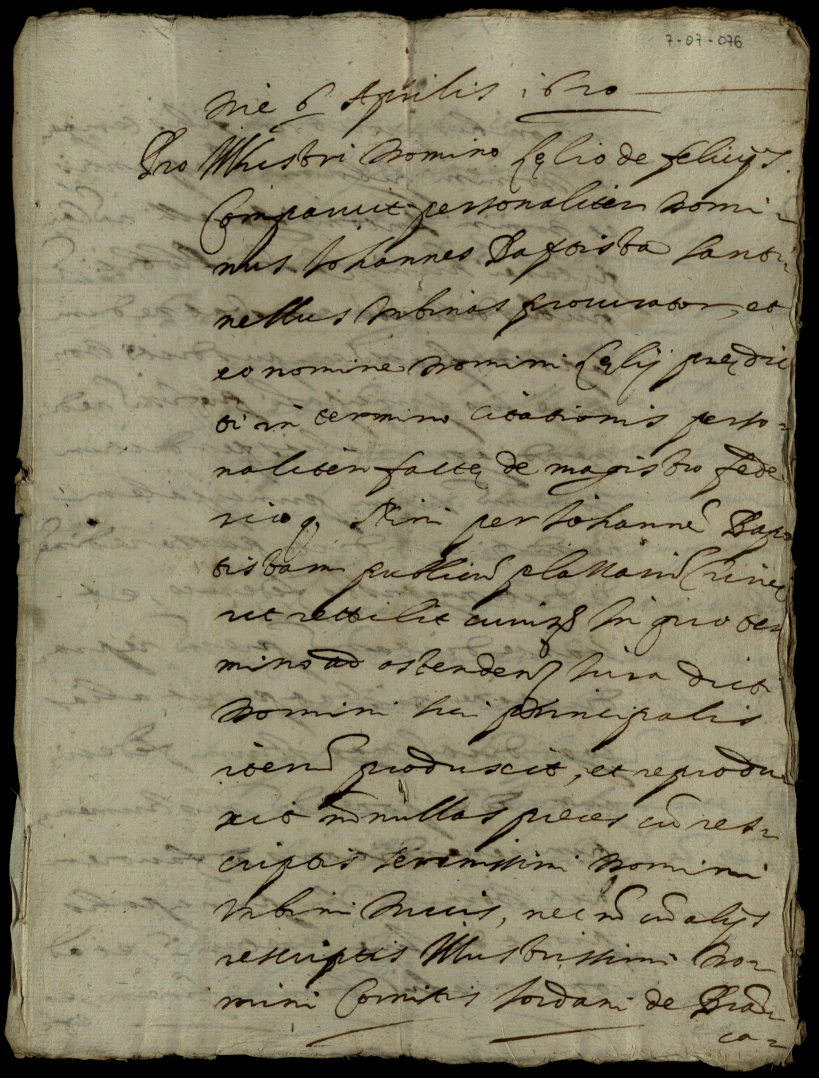 7-07-076
Die 6 Aprilis 1620
Pro Illustri Domino Lęlio de felicijs.
Comparuit personaliter Domi-
nus Iohannes Baptista santi
nellus Urbinas procurator, et
eo nomine Domini Lęlij prędic
ti in termino citationis perso-
naliter factę de magistro fede
rico per Iohannē Bap
tistam publicū
ut rettulit In quo ter
mino ad ostendend iura dicti
Domini sui principalis
iterū produscit, et reprodu
xit nōnullas preces cū res-
criptis serenissimi Domini
Urbini Ducis, nec nō cū alijs
rescriptis Illustrissimi Do-
mini Comitis Iordani de
ca-